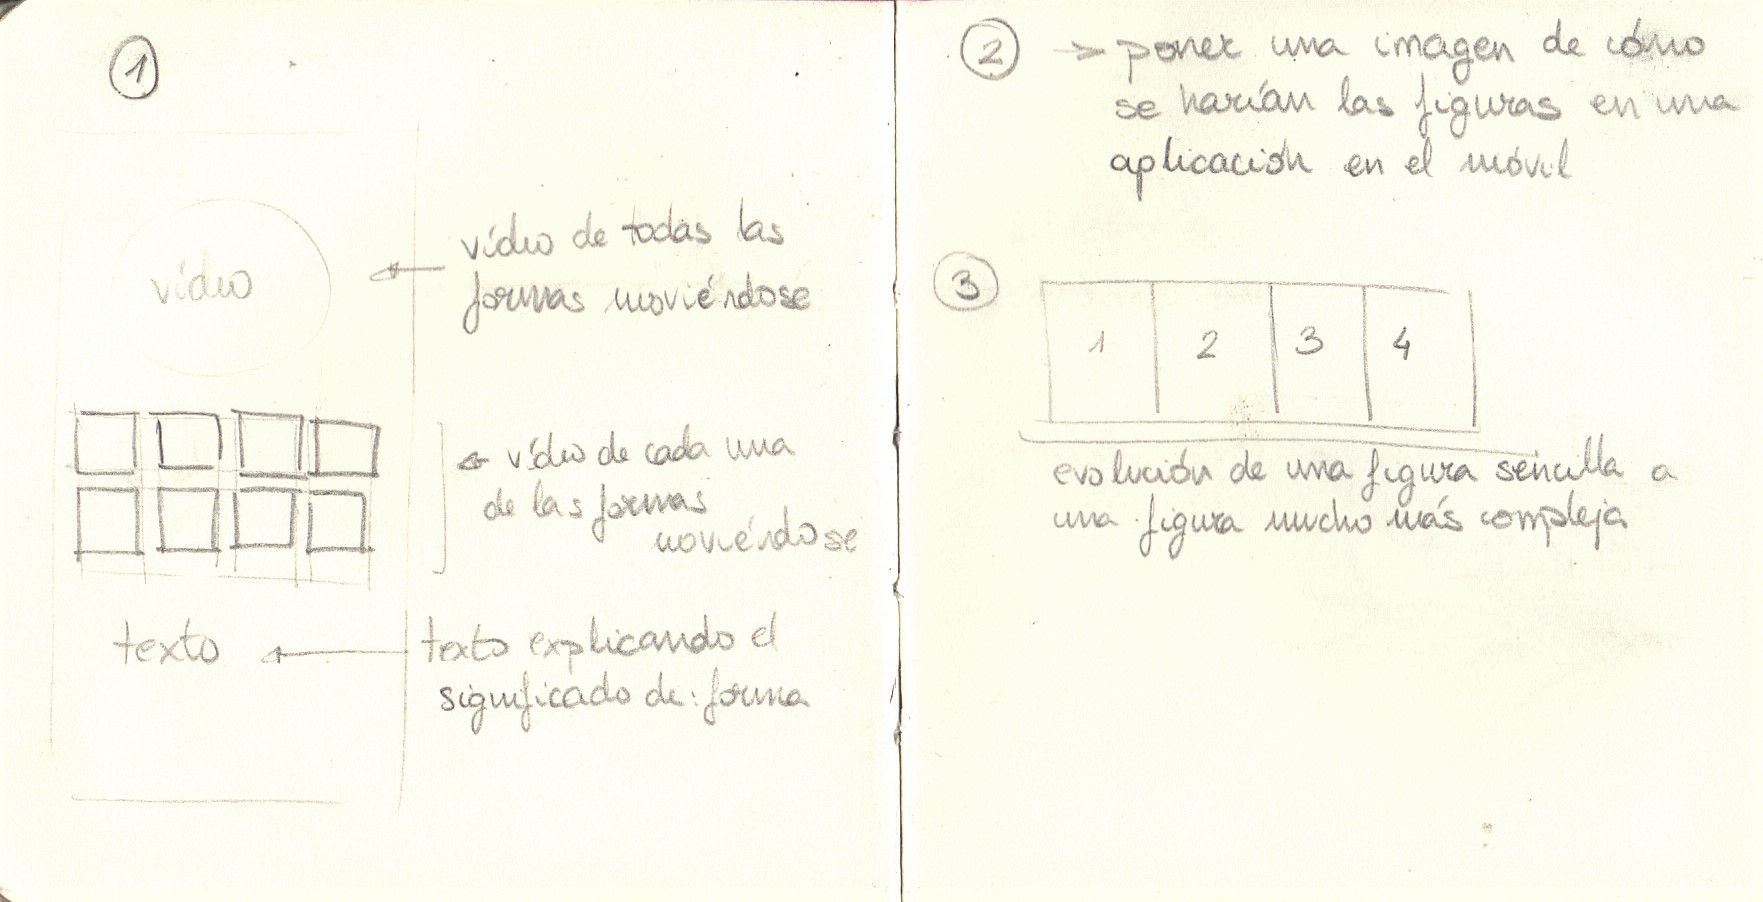 1
vídeo
vídeo de todas las
formas moviéndose
vídeo de cada una
de las formas
moviéndose
texto
texto explicando el
significado de: forma
2 → poner una imagen de cómo
se harían las figuras en una
aplicación en el móvil
3
1 2 3 4
evolución de una figura sencilla a
una figura mucho más compleja